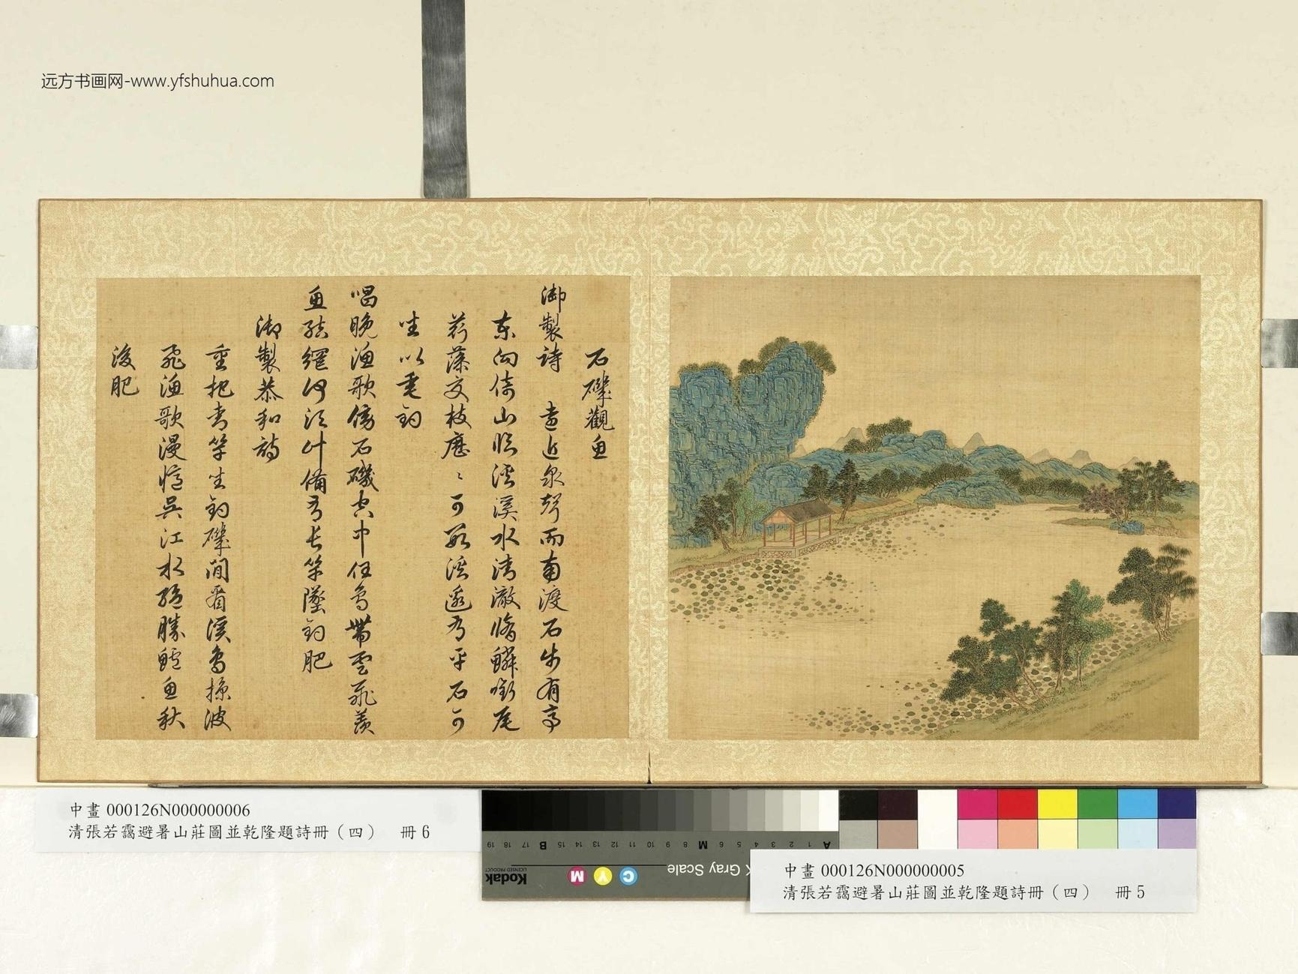 远方书画网-www.yfshuhua.com
石磯觀魚
御製詩 遠近泉聲而南渡石步有亭
東向倚山臨溪溪水清澈脩鱗銜尾
荇藻交枝歷〻可數溪邊有平石可
坐以垂釣
唱晚漁歌傍石磯空中任鳥帶雲飛羨
魚結網何須計備有長竿墜釣肥
御製恭和詩
重把青竿坐釣磯閒看溪鳥掠波
飛漁歌漫憶吳江水絕勝鱸魚秋
後肥
中畫 000126N000000006
清張若靄避暑山莊圖並乾隆題詩冊（四） 冊6
A 1 2 3 4 5 6 M 8 9 10 11 12 13 14 15 B 17 18 19
Gray Scale
C Y M
Kodak
LICENSED PRODUCT
中畫 000126N000000005
清張若靄避暑山莊圖並乾隆題詩冊（四） 冊5